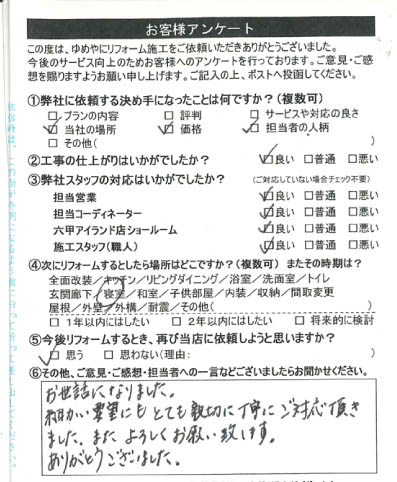 お客様アンケート
この度は、ゆめやにリフォーム施工をご依頼いただきありがとうございました。
今後のサービス向上のためお客様へのアンケートを行っております。ご意見・ご感
想を賜りますようお願い申し上げます。ご記入の上、ポストへ投函してください。
①弊社に依頼する決め手になったことは何ですか?(複数可)
□プランの内容 □評判 □サービスや対応の良さ
☑当社の場所 ☑価格 ☑担当者の人柄
□その他( )
②工事の仕上がりはいかがでしたか? ☑良い □普通 □悪い
③弊社スタッフの対応はいかがでしたか? (ご対応していない場合チェック不要)
担当営業 ☑良い □普通 □悪い
担当コーディネーター ☑良い □普通 □悪い
六甲アイランド店ショールーム ☑良い □普通 □悪い
施工スタッフ(職人) ☑良い □普通 □悪い
④次にリフォームするとしたら場所はどこですか?(複数可) またその時期は?
全面改装/キッチン/リビングダイニング/浴室/洗面室/トイレ
玄関廊下/寝室/和室/子供部屋/内装/収納/間取変更
屋根/外壁/外構/耐震/その他( )
□1年以内にはしたい □2年以内にはしたい □将来的に検討
⑤今後リフォームするとき、再び当店に依頼しようと思いますか?
☑思う □思わない(理由: )
⑥その他、ご意見・ご感想・担当者への一言などございましたらお聞かせください。
お世話になりました。
細かい要望にもとても親切に丁寧にご対応頂き
ました。また よろしくお願い致します。
ありがとうございました。